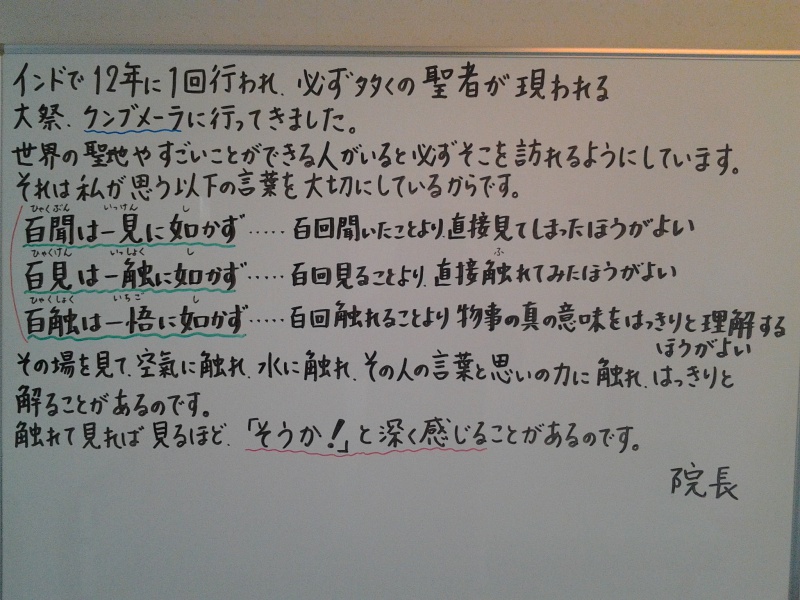 インドで12年に1回行われ、必ず多くの聖者が現われる
大祭、クンブメーラに行ってきました。
世界の聖地やすごいことができる人がいると必ずそこを訪れるようにしています。
それは私が思う以下の言葉を大切にしているからです。
ひゃくぶん いっけん し
百聞は一見に如かず‥‥‥百回聞いたことより、直接見てしまったほうがよい
ひゃくけん いっしょく し ふ
百見は一触に如かず‥‥‥百回見ることより、直接触れてみたほうがよい
ひゃくしょく いちご し
百触は一悟に如かず‥‥‥百回触れることより物事の真の意味をはっきりと理解する
ほうがよい
その場を見て、空氣に触れ、水に触れ、その人の言葉と思いの力に触れ、はっきりと
解ることがあるのです。
触れて見れば見るほど、「そうか!」と深く感じることがあるのです。
院長